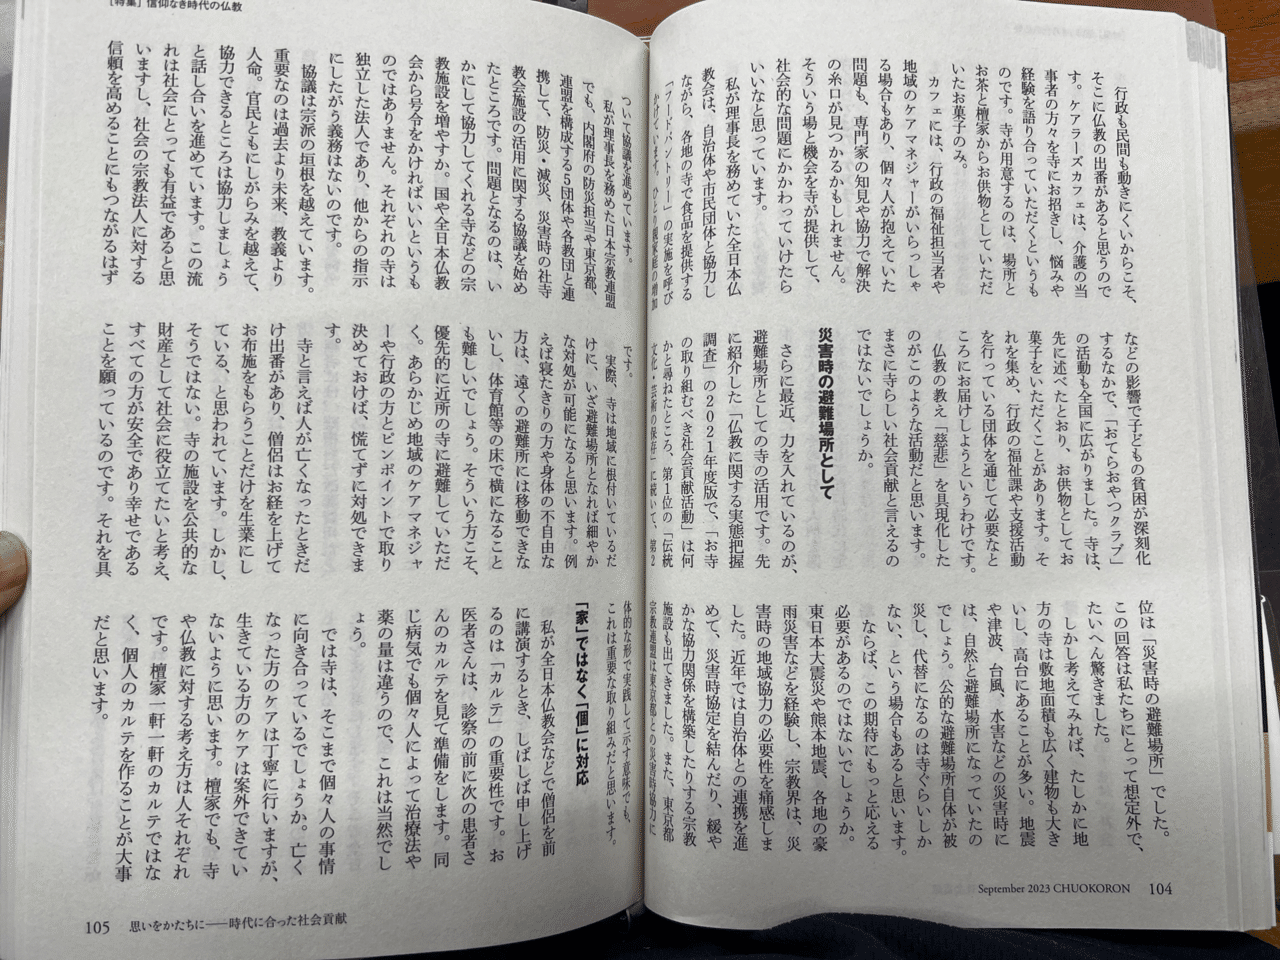 行政も民間も動きにくいからこそ、
そこに仏教の出番があると思うので
す。ケアラーズカフェは、介護の当
事者の方々を寺にお招きし、悩みや
経験を語り合っていただくというも
のです。寺が用意するのは、場所と
お茶と檀家からお供物としていただ
いたお菓子のみ。
カフェには、行政の福祉担当者や
地域のケアマネジャーがいらっしゃ
る場合もあり、個々人が抱えていた
問題も、専門家の知見や協力で解決
の糸口が見つかるかもしれません。
そういう場と機会を寺が提供して、
社会的な問題にかかわっていけたら
いいなと思っています。
私が理事長を務めていた全日本仏
教会は、自治体や市民団体と協力し
ながら、各地の寺で食品を提供する
「フードパントリー」の実施を呼び
かけています。ひとり親家庭の増加
などの影響で子どもの貧困が深刻化
するなかで、「おてらおやつクラブ」
の活動も全国に広がりました。寺は、
先に述べたとおり、お供物としてお
菓子をいただくことがあります。そ
れを集め、行政の福祉課や支援活動
を行っている団体を通じて必要なと
ころにお届けしようというわけです。
仏教の教え「慈悲」を具現化した
のがこのような活動だと思います。
まさに寺らしい社会貢献と言えるの
ではないでしょうか。
災害時の避難場所として
さらに最近、力を入れているのが、
避難場所としての寺の活用です。先
に紹介した「仏教に関する実態把握
調査」の2021年度版で、「お寺
の取り組むべき社会貢献活動」は何
かと尋ねたところ、第1位の「伝統
文化・芸術の保存」に続いて、第2
位は「災害時の避難場所」でした。
この回答は私たちにとって想定外で、
たいへん驚きました。
しかし考えてみれば、たしかに地
方の寺は敷地面積も広く建物も大き
いし、高台にあることが多い。地震
や津波、台風、水害などの災害時に
は、自然と避難場所になっていたの
でしょう。公的な避難場所自体が被
災し、代替になるのは寺ぐらいしか
ない、という場合もあると思います。
ならば、この期待にもっと応える
必要があるのではないでしょうか。
東日本大震災や熊本地震、各地の豪
雨災害などを経験し、宗教界は、災
害時の地域協力の必要性を痛感しま
した。近年では自治体との連携を進
めて、災害時協定を結んだり、緩や
かな協力関係を構築したりする宗教
施設も出てきました。また、東京都
宗教連盟は東京都との災害時協力に
September 2023 CHUOKORON 104
[特集] 信仰なき時代の仏教
ついて協議を進めています。
私が理事長を務めた日本宗教連盟
でも、内閣府の防災担当や東京都、
連盟を構成する5団体や各教団と連
携して、防災・減災、災害時の社寺
教会施設の活用に関する協議を始め
たところです。問題となるのは、い
かにして協力してくれる寺などの宗
教施設を増やすか。国や全日本仏教
会から号令をかければいいというも
のではありません。それぞれの寺は
独立した法人であり、他からの指示
にしたがう義務はないのです。
協議は宗派の垣根を越えています。
重要なのは過去より未来、教義より
人命。官民ともにしがらみを越えて、
協力できるところは協力しましょう
と話し合いを進めています。この流
れは社会にとっても有益であると思
いますし、社会の宗教法人に対する
信頼を高めることにもつながるはず
です。
実際、寺は地域に根付いているだ
けに、いざ避難場所となれば細やか
な対処が可能になると思います。例
えば寝たきりの方や身体の不自由な
方は、遠くの避難所には移動できな
いし、体育館等の床で横になること
も難しいでしょう。そういう方こそ、
優先的に近所の寺に避難していただ
く。あらかじめ地域のケアマネジャ
ーや行政の方とピンポイントで取り
決めておけば、慌てずに対処できま
す。
寺と言えば人が亡くなったときだ
け出番があり、僧侶はお経を上げて
お布施をもらうことだけを生業にし
ている、と思われています。しかし、
そうではない。寺の施設を公共的な
財産として社会に役立てたいと考え、
すべての方が安全であり幸せである
ことを願っているのです。それを具
体的な形で実践して示す意味でも、
これは重要な取り組みだと思います。
「家」ではなく「個」に対応
私が全日本仏教会などで僧侶を前
に講演するとき、しばしば申し上げ
るのは「カルテ」の重要性です。お
医者さんは、診察の前に次の患者さ
んのカルテを見て準備をします。同
じ病気でも個々人によって治療法や
薬の量は違うので、これは当然でし
ょう。
では寺は、そこまで個々人の事情
に向き合っているでしょうか。亡く
なった方のケアは丁寧に行いますが、
生きている方のケアは案外できてい
ないように思います。檀家でも、寺
や仏教に対する考え方は人それぞれ
です。檀家一軒一軒のカルテではな
く、個人のカルテを作ることが大事
だと思います。
105 思いをかたちに——時代に合った社会貢献